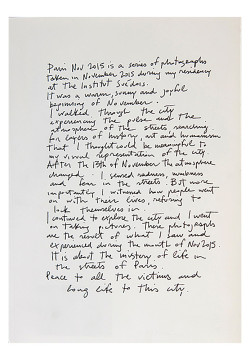 Paris Nov 2015 is a series of photographs
taken in November 2015 during my residency
at the Institut Suédois.
It was a warm, sunny and joyful
beginning of November.
I walked through the city
experiencing the pulse and the
atmosphere of the streets searching
for layers of history, art and humanism
that I thought could be meaningful in
my visual representation of the city
After the 13th of November the atmosphere
changed. I sensed sadness, numbness
and fear in the streets. But more
importantly I witnessed how people went
on with their lives, refusing to
lock themselves in.
I continued to explore the city and I went
on taking pictures. These photographs
are the result of what I saw and
experienced during the month of Nov 2015.
It is about the mystery of life in
the streets of Paris.
Peace to all the victims and
long life to this city.